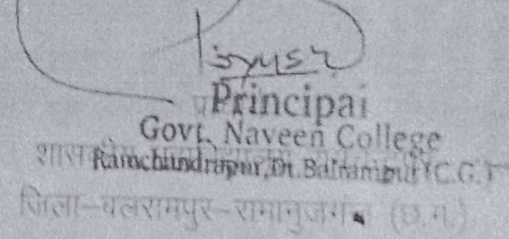 Principal
Govt. Naveen College
Ramchandrapur, Dt. Balrampur (C.G.)
जिला-बलरामपुर-रामानुजगंज (छ.ग.)